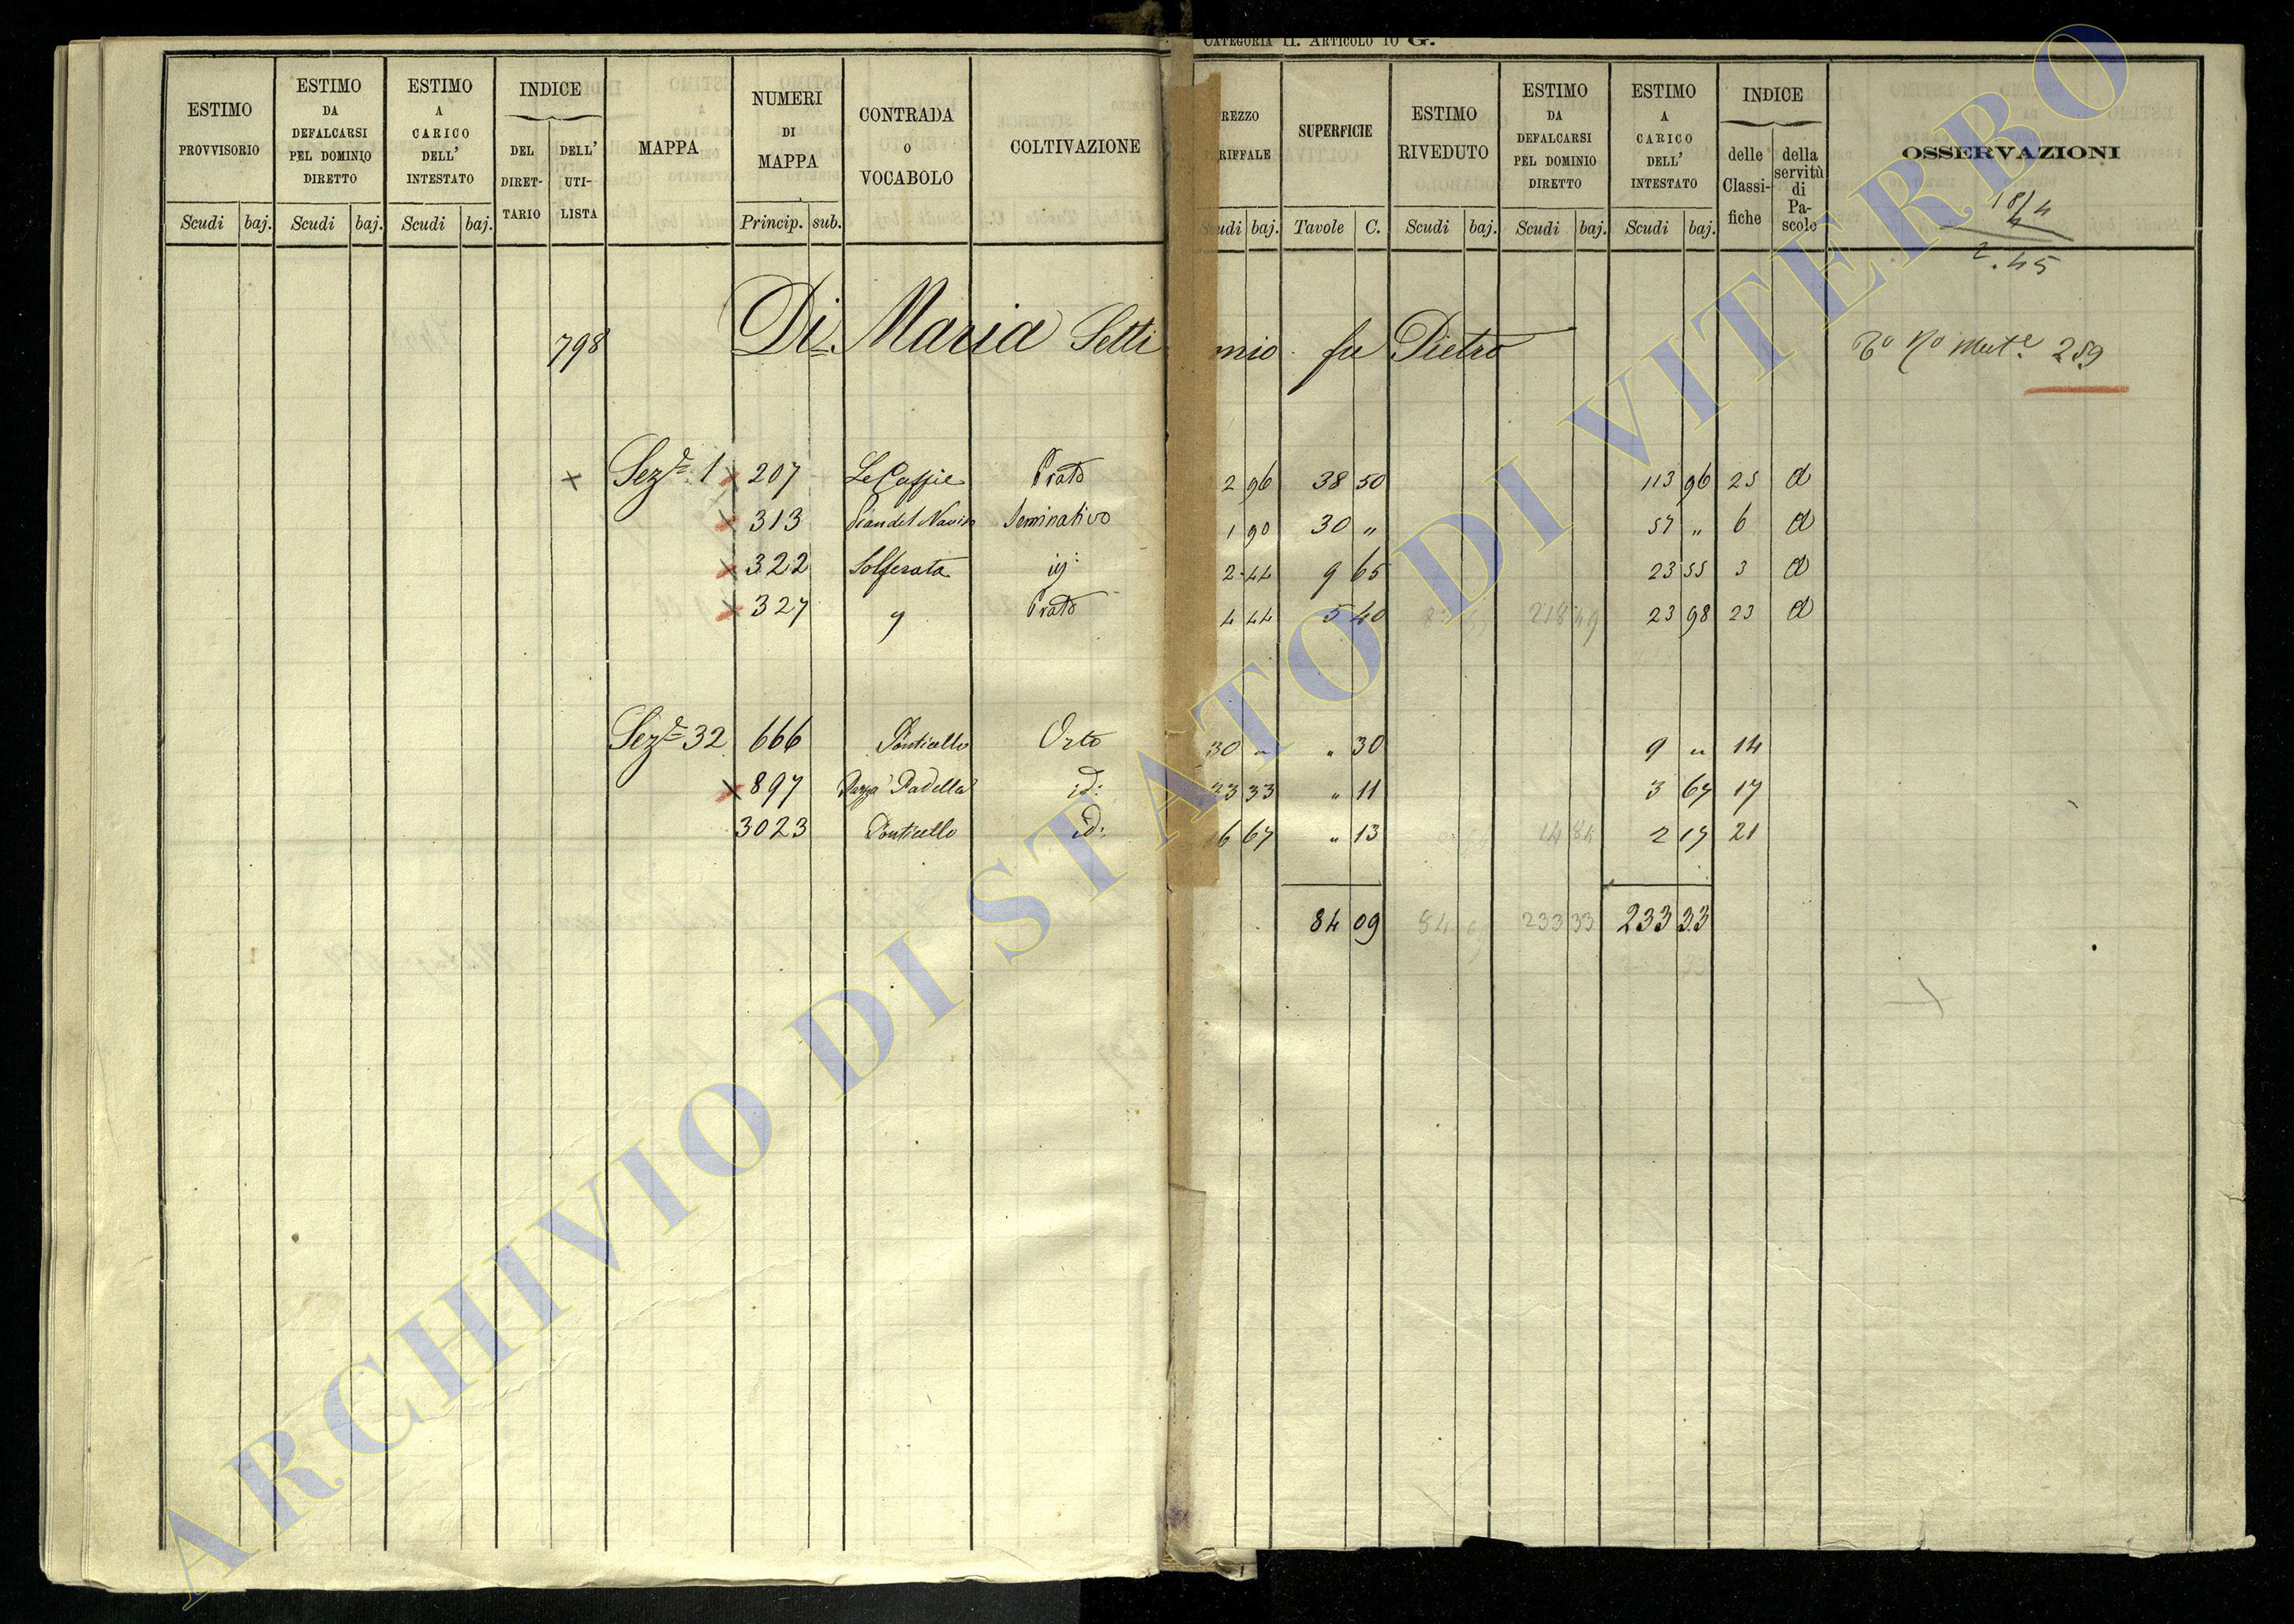 CATEGORIA II. ARTICOLO 10 G.
ESTIMO PROVVISORIO Scudi baj.
ESTIMO DA DEFALCARSI PEL DOMINIO DIRETTO Scudi baj.
ESTIMO A CARICO DELL' INTESTATO Scudi baj.
INDICE DEL DIRET-TARIO DELL' UTI-LISTA
MAPPA
NUMERI DI MAPPA Princip. sub.
CONTRADA O VOCABOLO
COLTIVAZIONE
REZZO RIFFALE Scudi baj.
SUPERFICIE Tavole C.
ESTIMO RIVEDUTO Scudi baj.
ESTIMO DA DEFALCARSI PEL DOMINIO DIRETTO Scudi baj.
ESTIMO A CARICO DELL' INTESTATO Scudi baj.
INDICE delle Classi-fiche della servitù di Pa-scolo
OSSERVAZIONI
2.45
798 Di Maria Settimio fu Pietro 259
x Sez.e 1 x 207 Prato 2 96 38 50 113 96 25 d
x 313 Seminativo 1 90 30 „ 57 „ 6 d
x 322 Solferata 2 44 9 65 23 55 3 d
x 327 Prato 4 44 5 40 23 98 23 d
Sez.e 32 666 Ponticello Orto 30 „ „ 30 9 „ 14
x 897 Padella id: 23 33 „ 11 3 67 17
3023 Ponticello id: 16 67 „ 13 2 17 21
84 09 84 09 233 33 233 33
ARCHIVIO DI STATO DI VITERBO